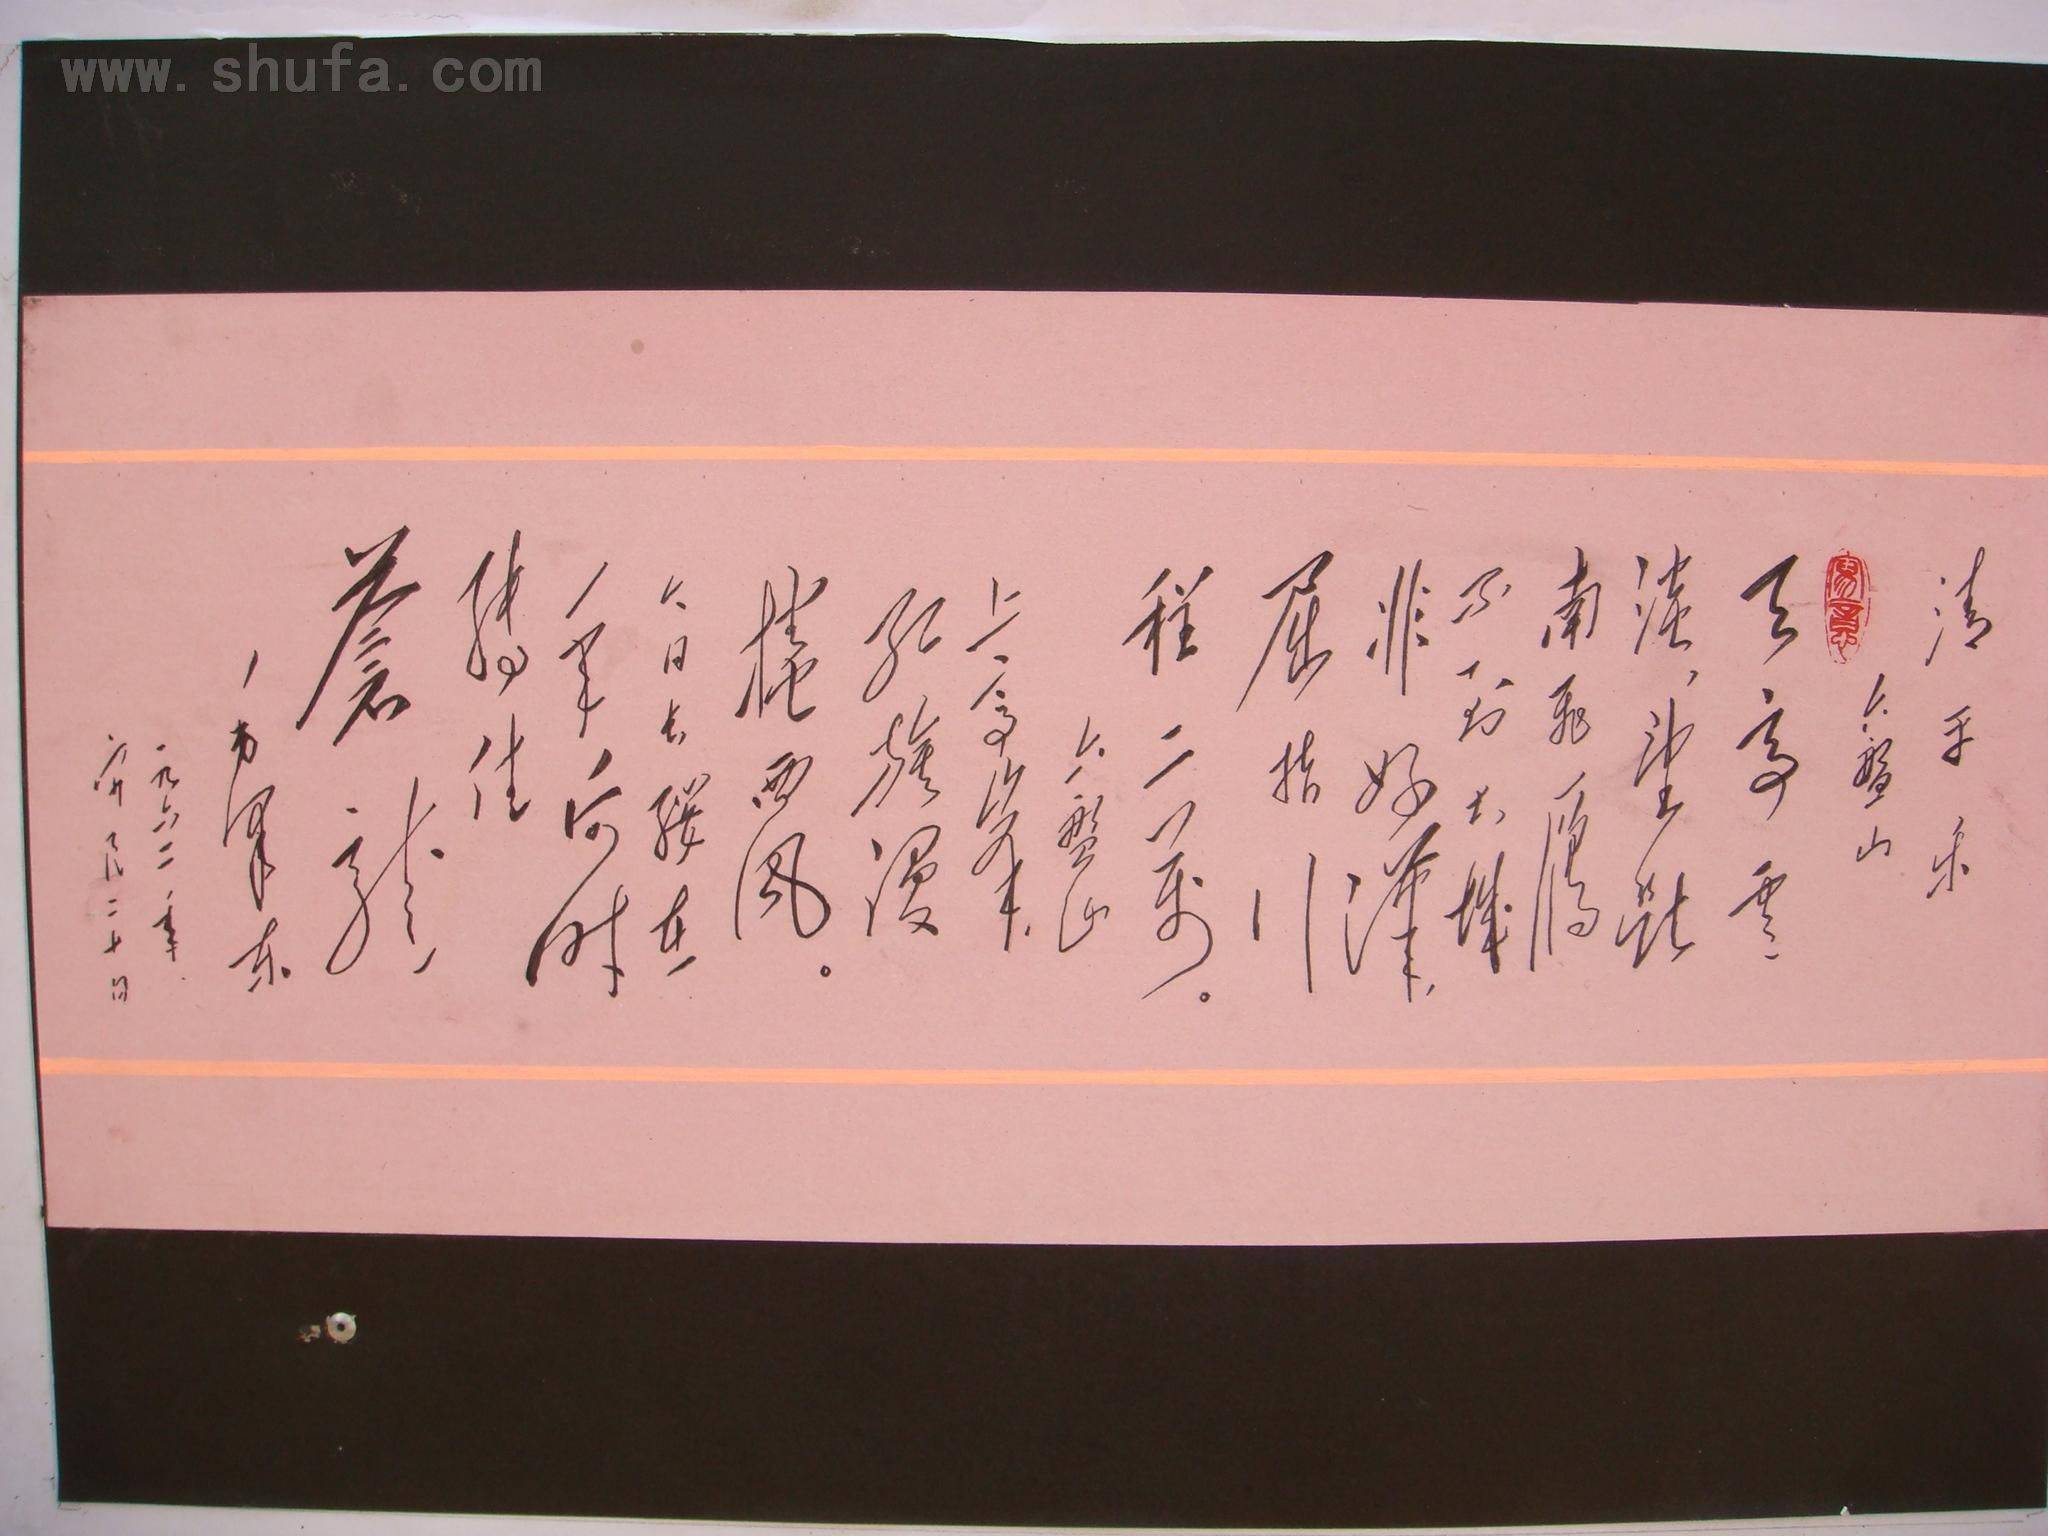 www.shufa.com
清平乐
六盤山
天高雲
淡,望断
南飛鴈
不到长城
非好漢,
屈指行
程二萬。
六盤山
上高峰,
红旗漫
捲西風。
今日长缨在
手何时
缚住
蒼龍
毛泽东
一九六二年
二十日